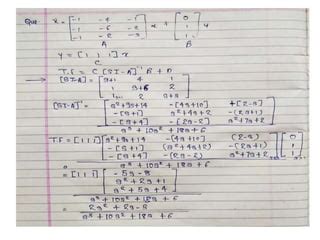 Que. ẋ = [-1 -4 -1; -1 -6 -2; -1 -2 -3] x + [0; 1; 1] u
A B
y = [1 1 1] x
C
T.F = C [SI-A]⁻¹ B + D
→ [SI-A] = [s+1 4 1; 1 s+6 2; 1 2 s+3]
[SI-A]⁻¹ = [s²+9s+14 -[4s+10] +[2-s]; -[s+1] s²+4s+2 -[2s+1]; -[s+4] -[2s-2] s²+7s+2]
s³ + 10s² + 18s + 6
T.F = [1 1 1] [s²+9s+14 -(4s+10) (2-s); -[s+1] (s²+4s+2) -(2s+1); -[s+4] -(2s-2) s²+7s+2] [0; 1; 1]
s³ + 10s² + 18s + 6
= [1 1 1] [-5s-8; s²+2s+1; s²+5s+4]
s³ + 10s² + 18s + 6
= 2s² + 2s - 3
s³ + 10s² + 18s + 6